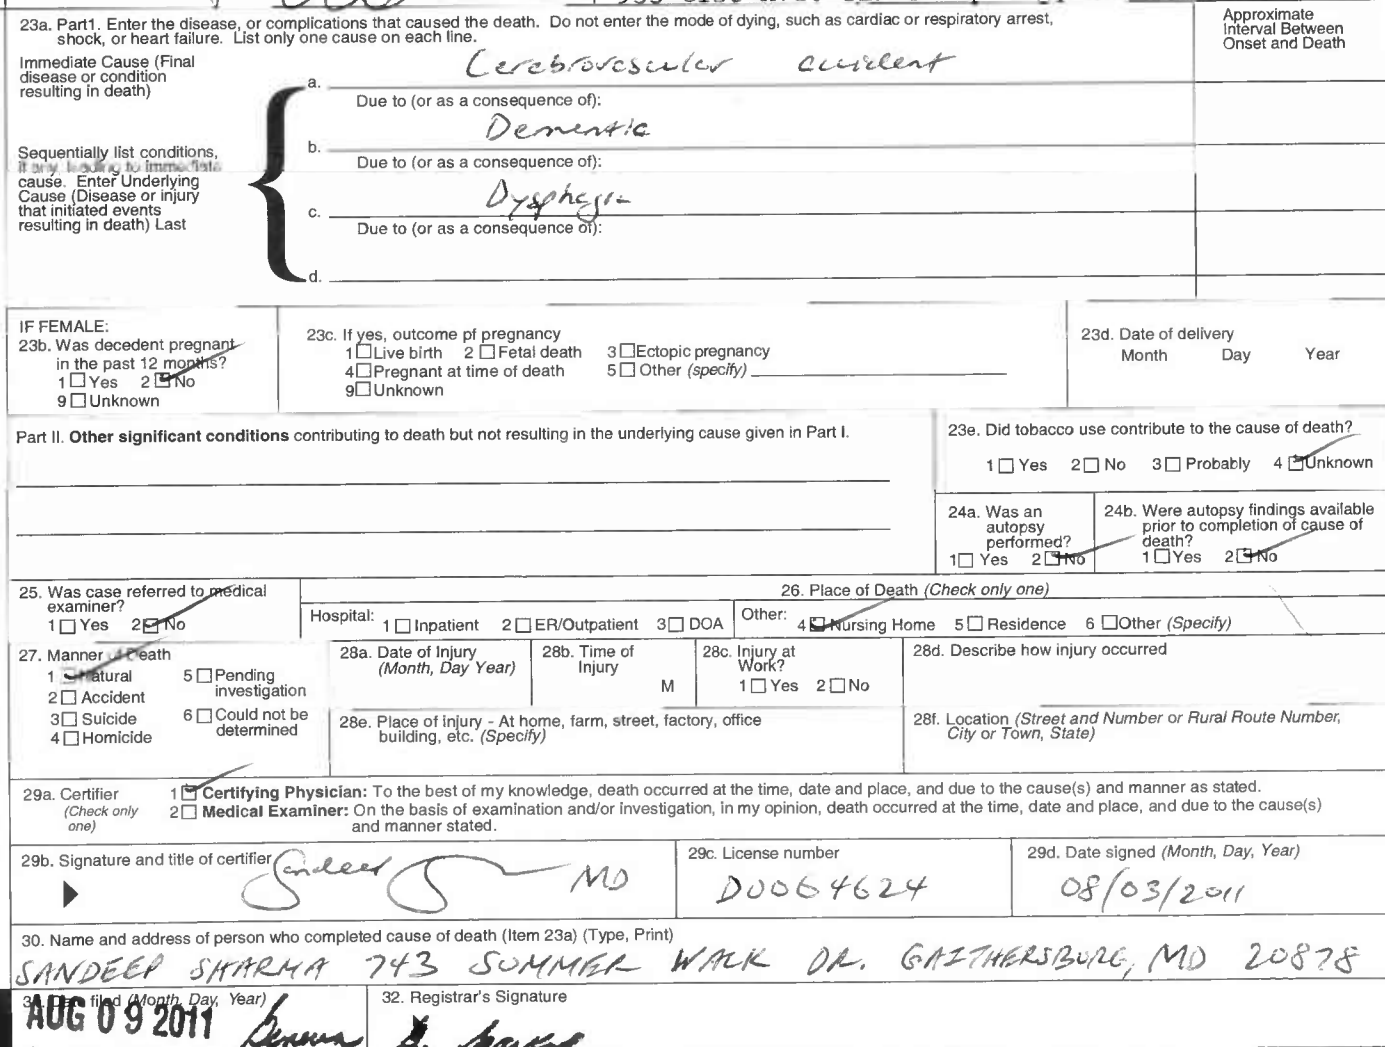 23a. Part1. Enter the disease, or complications that caused the death. Do not enter the mode of dying, such as cardiac or respiratory arrest,
shock, or heart failure. List only one cause on each line.
Approximate
Interval Between
Onset and Death
Immediate Cause (Final
disease or condition
resulting in death)
a. Cerebrovascular accident
Due to (or as a consequence of):
b. Dementia
Sequentially list conditions,
if any, leading to immediate
cause. Enter Underlying
Cause (Disease or injury
that initiated events
resulting in death) Last
Due to (or as a consequence of):
c. Dysphagia
Due to (or as a consequence of):
d.
IF FEMALE:
23b. Was decedent pregnant
in the past 12 months?
1 Yes 2 No
9 Unknown
23c. If yes, outcome pf pregnancy
1 Live birth 2 Fetal death 3 Ectopic pregnancy
4 Pregnant at time of death 5 Other (specify)
9 Unknown
23d. Date of delivery
Month Day Year
Part II. Other significant conditions contributing to death but not resulting in the underlying cause given in Part I.
23e. Did tobacco use contribute to the cause of death?
1 Yes 2 No 3 Probably 4 Unknown
24a. Was an
autopsy
performed?
1 Yes 2 No
24b. Were autopsy findings available
prior to completion of cause of
death?
1 Yes 2 No
25. Was case referred to medical
examiner?
1 Yes 2 No
26. Place of Death (Check only one)
Hospital: 1 Inpatient 2 ER/Outpatient 3 DOA
Other: 4 Nursing Home 5 Residence 6 Other (Specify)
27. Manner of Death
1 Natural
2 Accident
3 Suicide
4 Homicide
5 Pending
investigation
6 Could not be
determined
28a. Date of Injury
(Month, Day Year)
28b. Time of
Injury
M
28c. Injury at
Work?
1 Yes 2 No
28d. Describe how injury occurred
28e. Place of injury - At home, farm, street, factory, office
building, etc. (Specify)
28f. Location (Street and Number or Rural Route Number,
City or Town, State)
29a. Certifier
(Check only
one)
1 Certifying Physician: To the best of my knowledge, death occurred at the time, date and place, and due to the cause(s) and manner as stated.
2 Medical Examiner: On the basis of examination and/or investigation, in my opinion, death occurred at the time, date and place, and due to the cause(s)
and manner stated.
29b. Signature and title of certifier
Sandeep MD
29c. License number
D0064624
29d. Date signed (Month, Day, Year)
08/03/2011
30. Name and address of person who completed cause of death (Item 23a) (Type, Print)
SANDEEP SHARMA 743 SUMMER WALK DR. GAITHERSBURG, MD 20878
31. Date filed (Month, Day, Year)
AUG 09 2011
32. Registrar's Signature